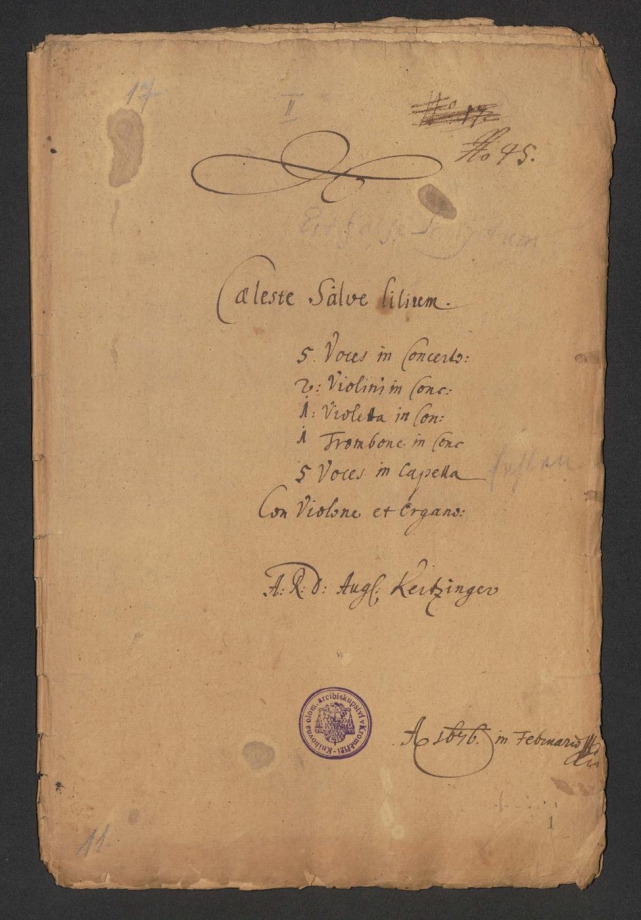 17
II
No 17.
No 45.
Cæleste Salve lilium.
5. Voces in Concerto:
2: Violinis in Conc:
1: Violetta in Con:
1 Trombone in Conc
5 Voces in Capella
Con Violone et Organo:
A: R: D: Aug: Kertzinger
A 1676. in Februario
Knihovna olom. arcibiskupství v Kroměříži
11.
1